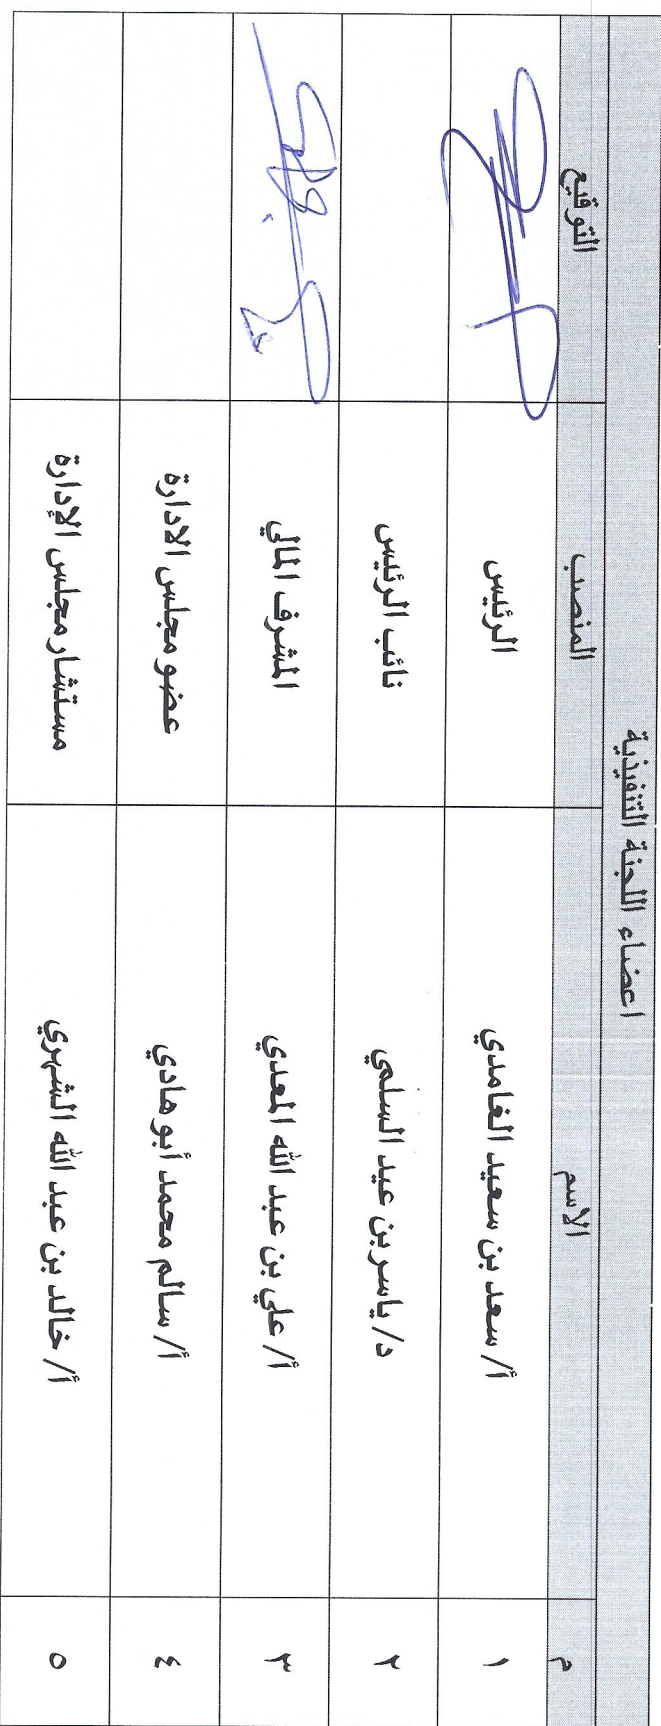 اعضاء اللجنة التنفيذية
م الاسم المنصب التوقيع
١ أ/ سعد بن سعيد الغامدي الرئيس
٢ د/ ياسر بن عيد السلمي نائب الرئيس
٣ أ/ علي بن عبد الله المعدي المشرف المالي
٤ أ/ سالم محمد أبو هادي عضو مجلس الادارة
٥ أ/ خالد بن عبد الله الشهري مستشار مجلس الإدارة